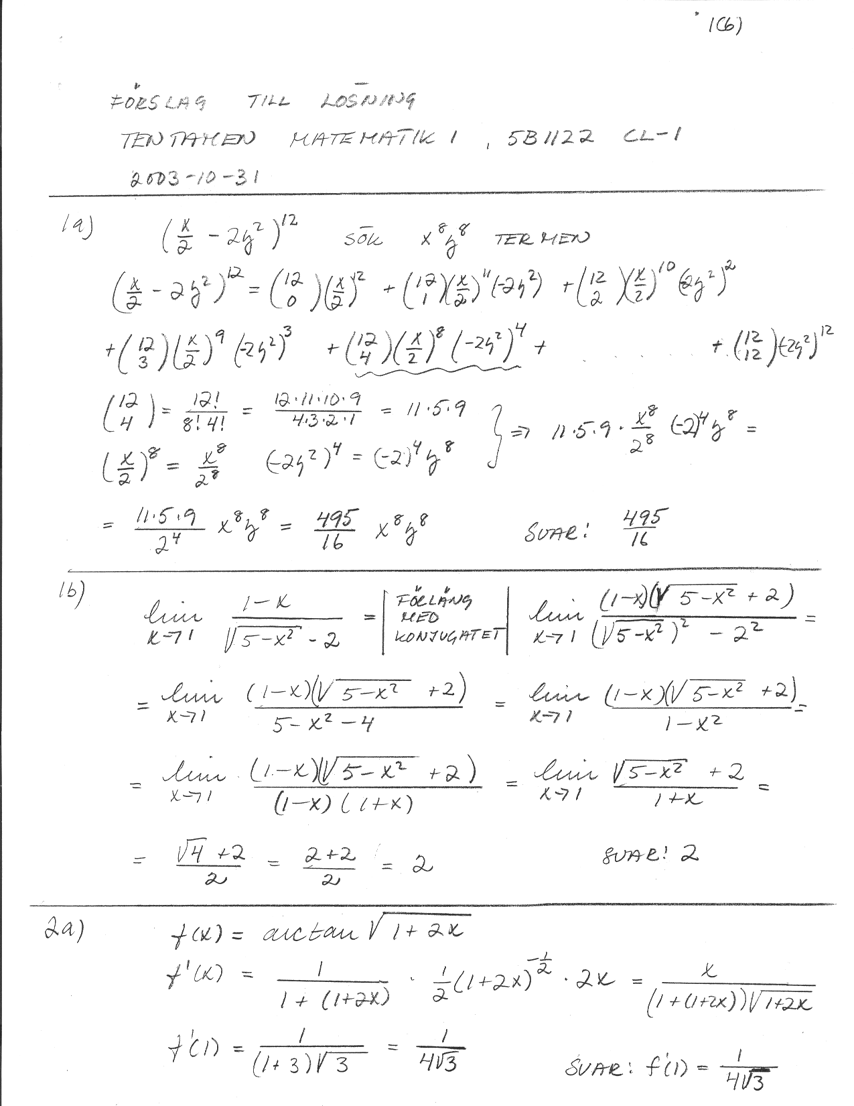 1(6)
FÖRSLAG TILL LÖSNING
TENTAMEN MATEMATIK 1, 5B1122 CL-1
2003-10-31
1a) (x/2 - 2y²)¹² SÖK x⁸y⁸ TERMEN
(x/2 - 2y²)¹² = (12 0)(x/2)¹² + (12 1)(x/2)¹¹(-2y²) + (12 2)(x/2)¹⁰(-2y²)²
+ (12 3)(x/2)⁹(-2y²)³ + (12 4)(x/2)⁸(-2y²)⁴ + . . . . . + (12 12)(-2y²)¹²
(12 4) = 12!/8!4! = 12·11·10·9/4·3·2·1 = 11·5·9
(x/2)⁸ = x⁸/2⁸ (-2y²)⁴ = (-2)⁴y⁸ } ⇒ 11·5·9·x⁸/2⁸ (-2)⁴y⁸ =
= 11·5·9/2⁴ x⁸y⁸ = 495/16 x⁸y⁸ SVAR: 495/16
1b) lim x→1 (1-x)/(√(5-x²) - 2) = | FÖRLÄNG MED KONJUGATET | lim x→1 (1-x)(√(5-x²) + 2)/((√(5-x²))² - 2²) =
= lim x→1 (1-x)(√(5-x²) + 2)/(5-x²-4) = lim x→1 (1-x)(√(5-x²) + 2)/(1-x²) =
= lim x→1 (1-x)(√(5-x²) + 2)/((1-x)(1+x)) = lim x→1 (√(5-x²) + 2)/(1+x) =
= (√4 + 2)/2 = (2+2)/2 = 2 SVAR: 2
2a) f(x) = arctan √(1+2x)
f'(x) = 1/(1 + (1+2x)) · 1/2 (1+2x)^(-1/2) · 2x = x/((1+(1+2x))√(1+2x))
f'(1) = 1/((1+3)√3) = 1/(4√3) SVAR: f'(1) = 1/(4√3)